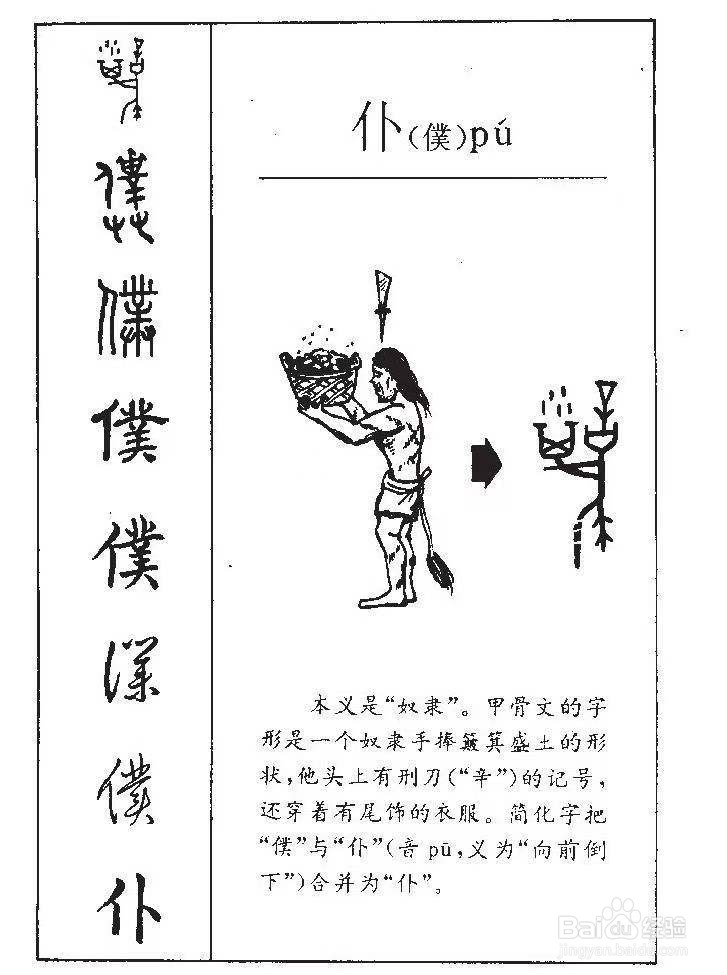 仆(僕)pú
僕
僕
僕
仆
本义是“奴隶”。甲骨文的字
形是一个奴隶手捧簸箕盛土的形
状,他头上有刑刀(“辛”)的记号,
还穿着有尾饰的衣服。简化字把
“僕”与“仆”(音pū,义为“向前倒
下”)合并为“仆”。
Baidu经验
jingyan.baidu.com